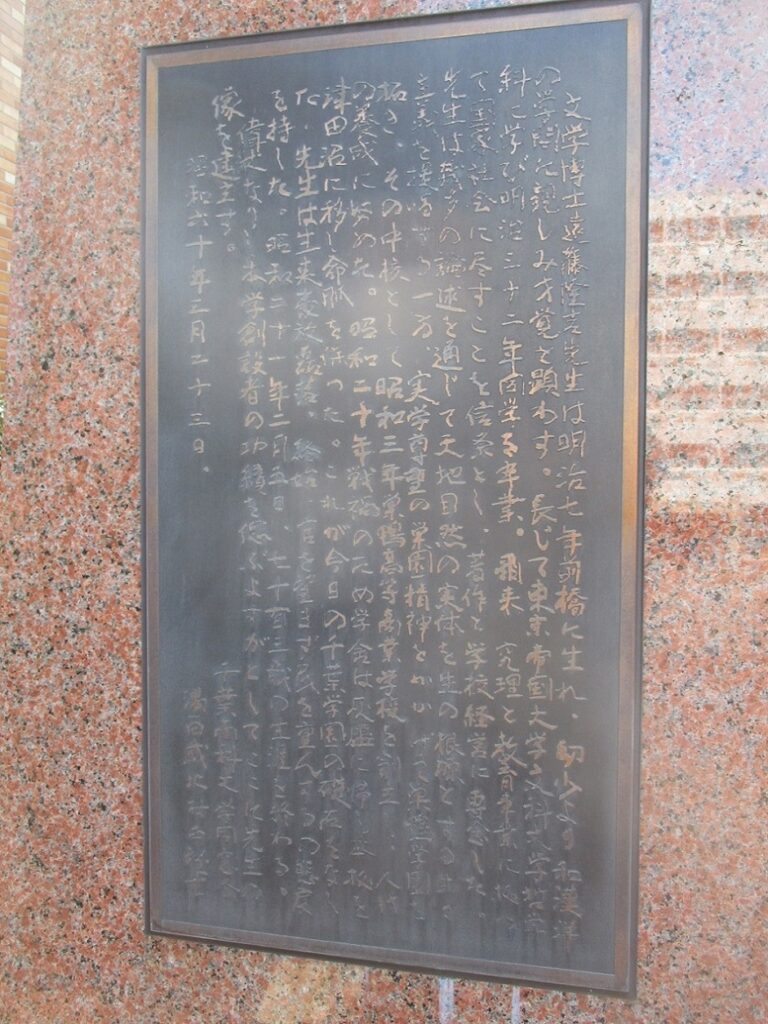 文学博士遠藤隆吉先生は明治七年前橋に生れ、幼少より和漢洋
の学問に親しみ才覚を顕わす。長じて東京帝国大学文科大学哲学
科に学び明治三十二年同学を卒業。爾来 究理と教育事業に
て国家社会に尽すことを信条とし、著作と学校経営に専念した。
先生は幾多の論述を通じて天地自然の実体を生の根源とする
を 一方、実学尊重の学園精神を
拓き、その中核として昭和三年巣鴨高等商業学校を創立し、人材
の養成に努めた。昭和二十年戦禍のため学舎は灰燼に帰し本校を
津田沼に移し命脈を保った。これが今日の千葉学園の礎石をなし
た。先生は生来豪放磊落、終始 言を 民を重んずるの態度
を持した。昭和二十一年二月五日、七十有三歳の生涯を終わる。
偉丈なり 本学創設者の功績を偲ぶよすがとしてここに先生の
像を建立す。
昭和六十年二月二十三日。
千葉商科大学同窓会